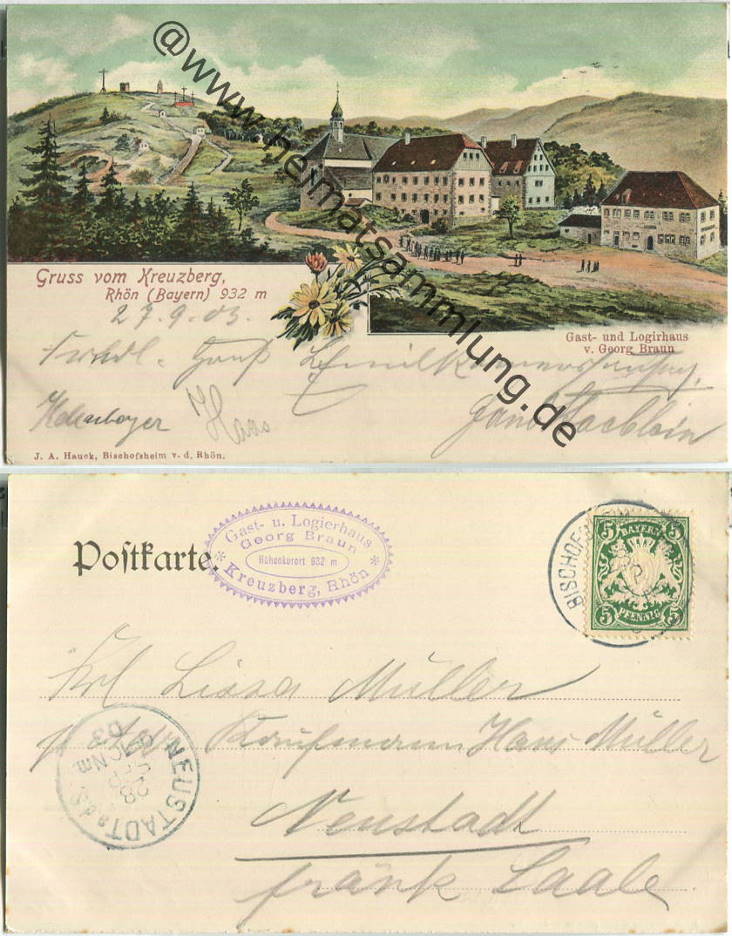 @www.heimatsammlung.de
Gruss vom Kreuzberg,
Rhön (Bayern) 932 m
27.9.03.
Gast- und Logirhaus
v. Georg Braun
Haas
J. A. Hauck, Bischofsheim v. d. Rhön.
Postkarte.
Gast- u. Logierhaus
Georg Braun
Höhenkurort 932 m
Kreuzberg, Rhön
BAYERN
5 5
5 5
PFENNIG
Frl Lissa Müller
Kaufmann Hans Müller
Neustadt
fränk Saale.
NEUSTADT a.d.S.
28
03